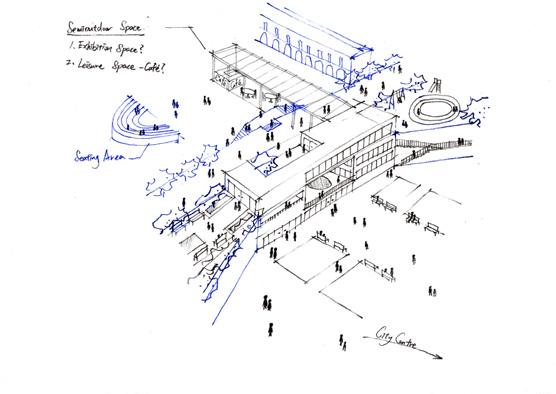 Semioutdoor Space.
1. Exhibition Space?
2. Leisure Space - Café?
Seating Area
City Centre